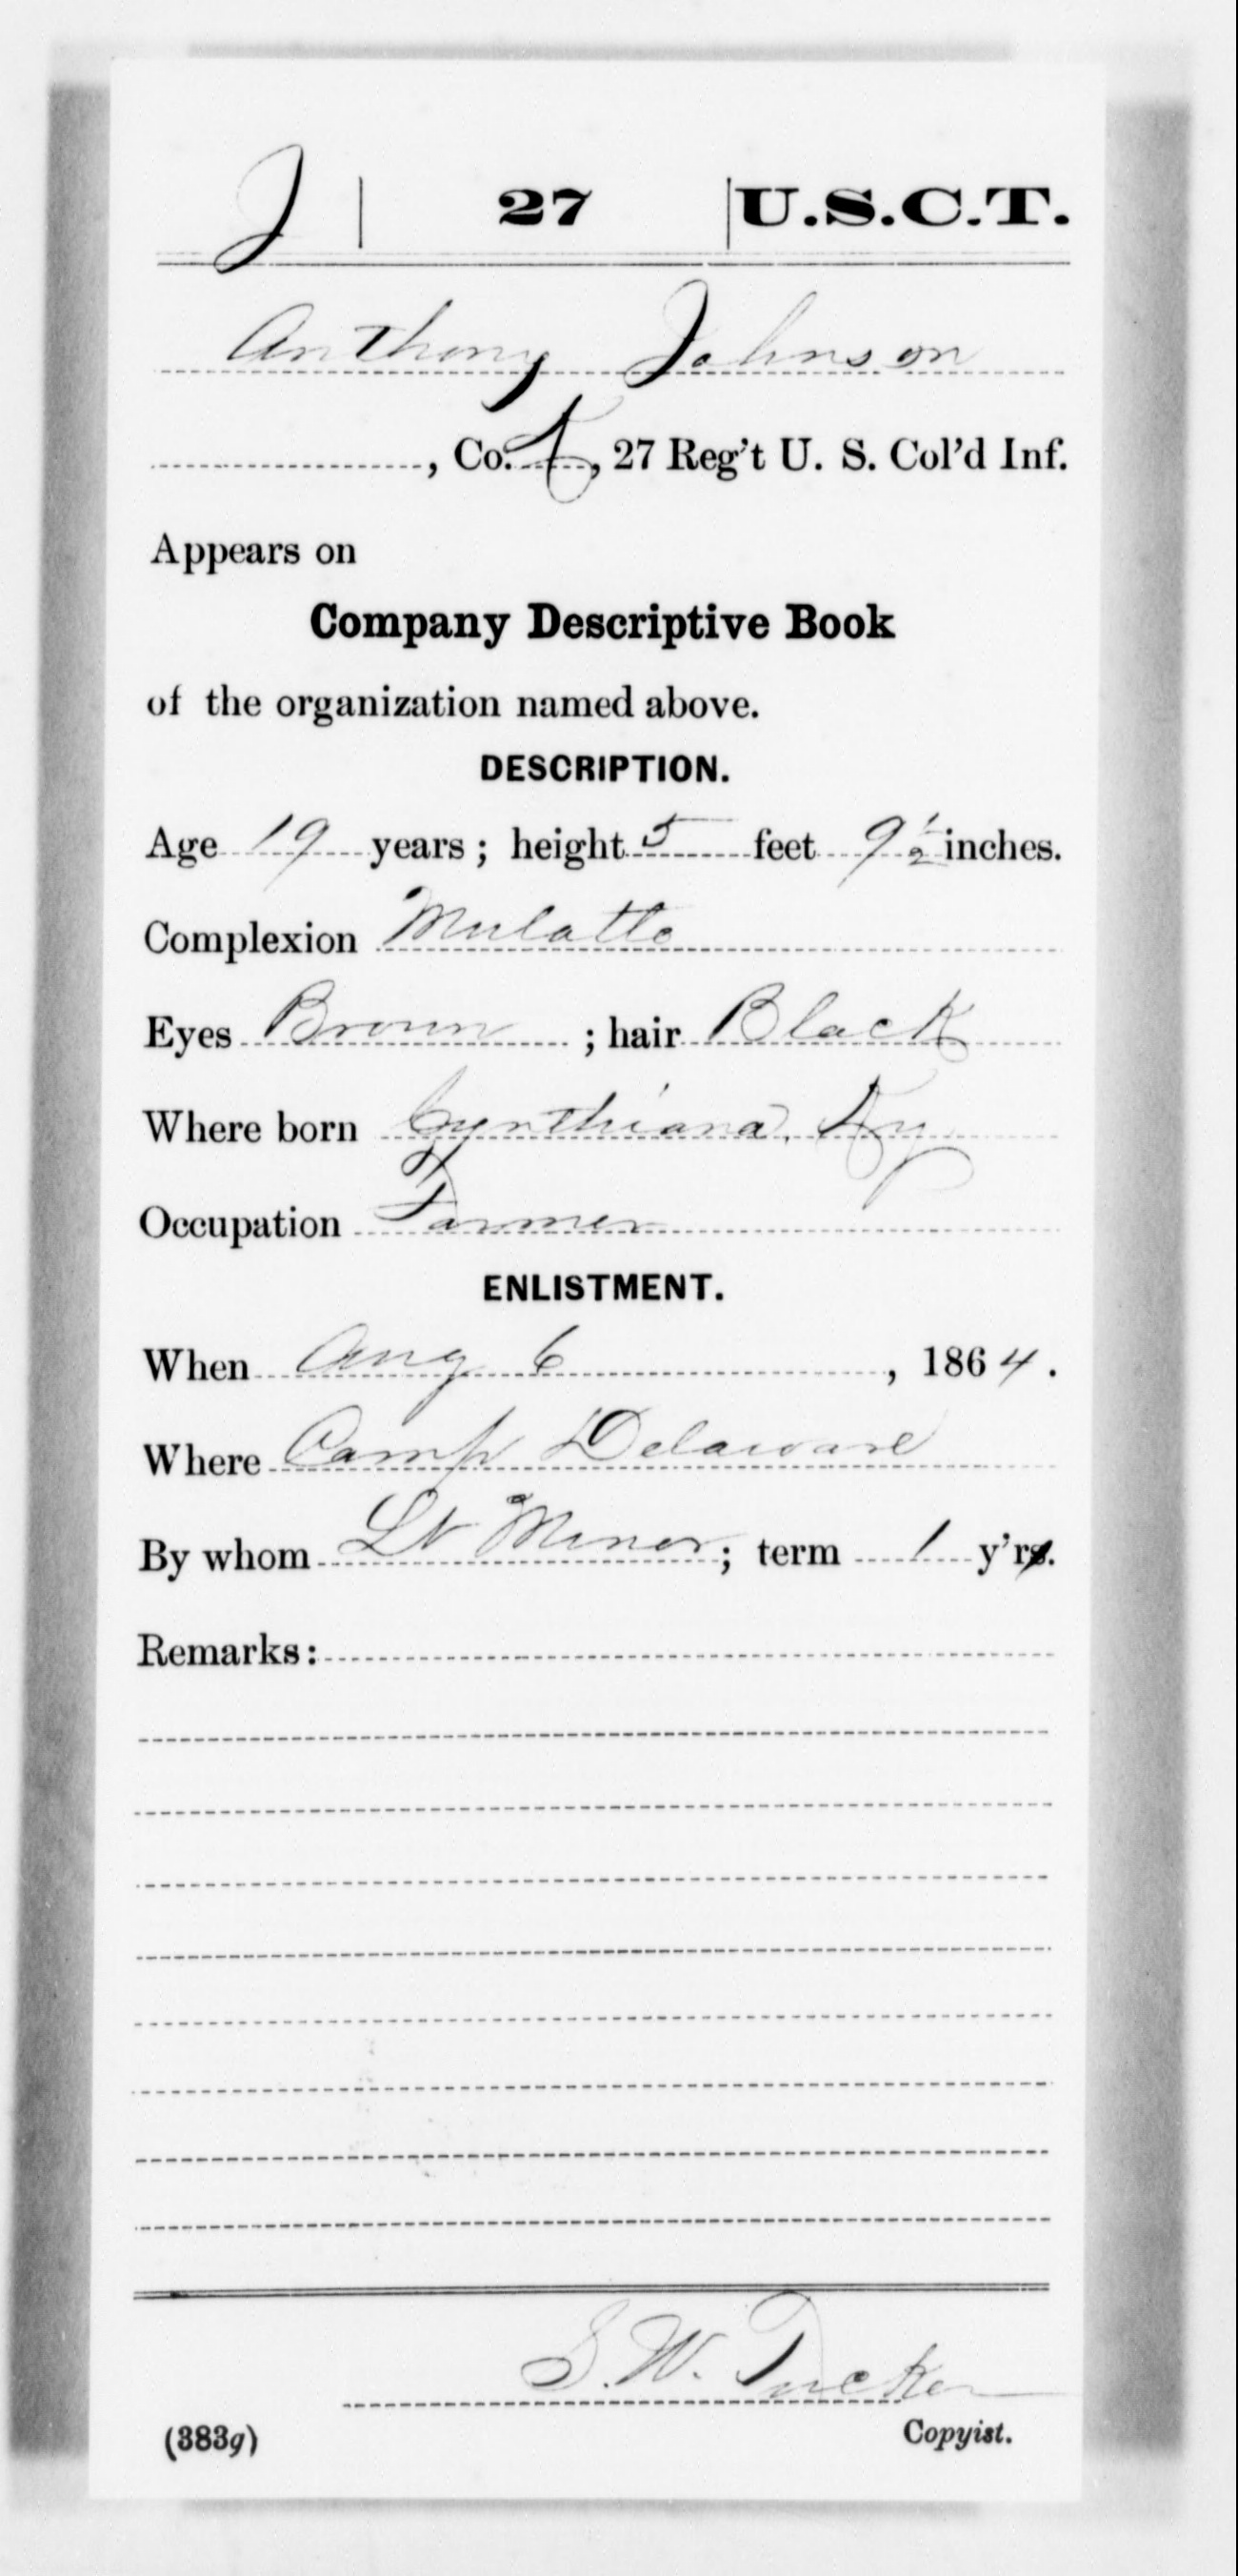 J | 27 | U.S.C.T.
Anthony Johnson
, Co. K, 27 Reg't U. S. Col'd Inf.
Appears on
Company Descriptive Book
of the organization named above.
DESCRIPTION.
Age 19 years; height 5 feet 9 1/2 inches.
Complexion Mulatto
Eyes Brown; hair Black
Where born Cynthiana, Ky
Occupation Farmer
ENLISTMENT.
When Aug 6, 1864.
Where Camp Delaware
By whom Lt Miner; term 1 y'rs.
Remarks:
S. W. Tucker
(383g) Copyist.